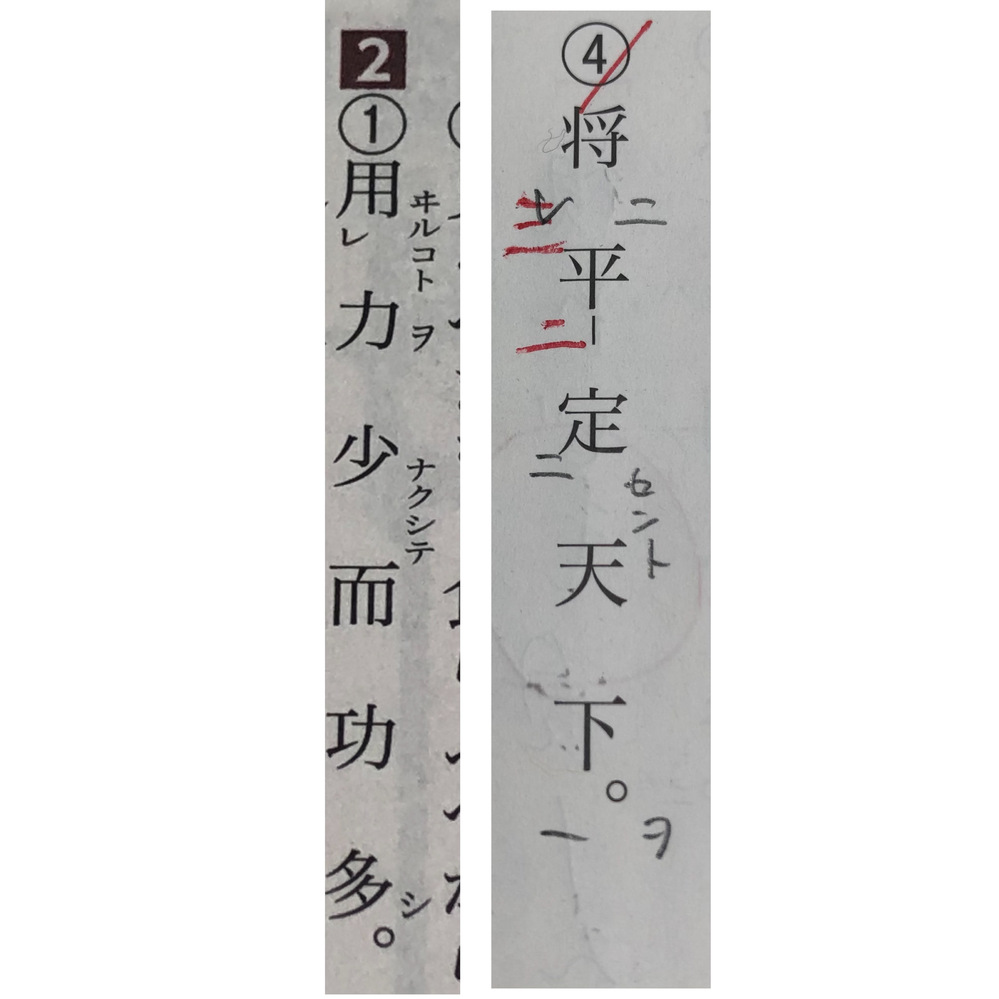 2
①用レ力少而功多。
ヰルコトヲ
ナクシテ
シ
④将平定天下。
レ
ニ
三
二
二
セント
一
ヲ